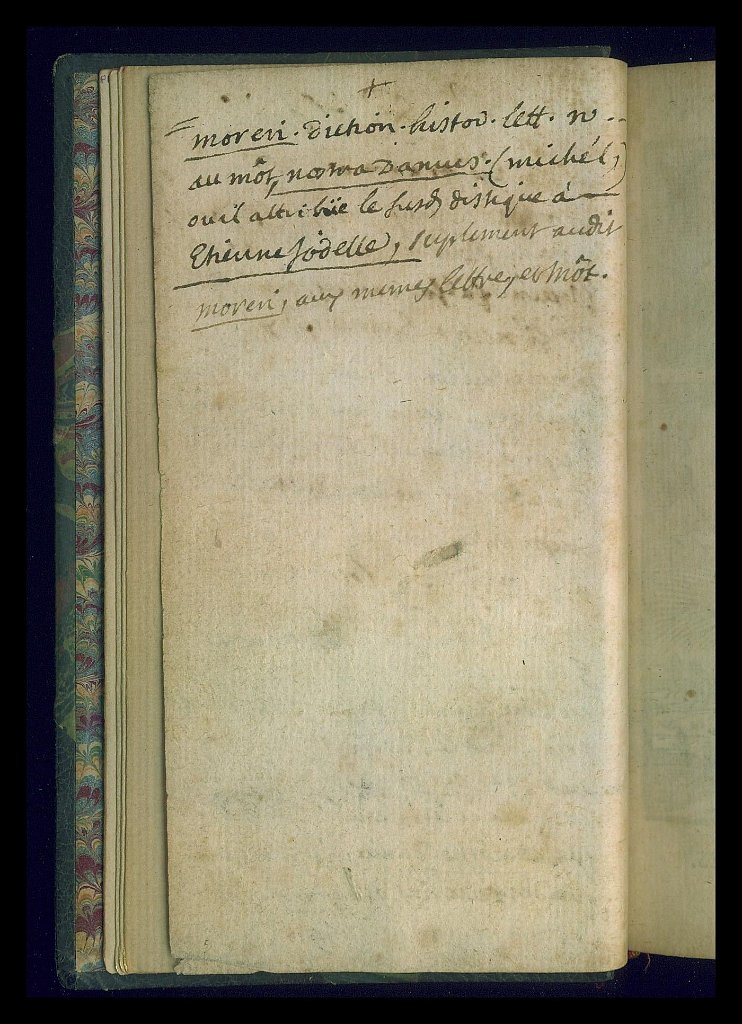 +
= moreri. diction. histor. lett. n..
au môt, nostradamus. (michél,)
ou il attribüe le susd distique á
Etienne jodelle, suplement audit
moreri, aux memes lettre, et môt.